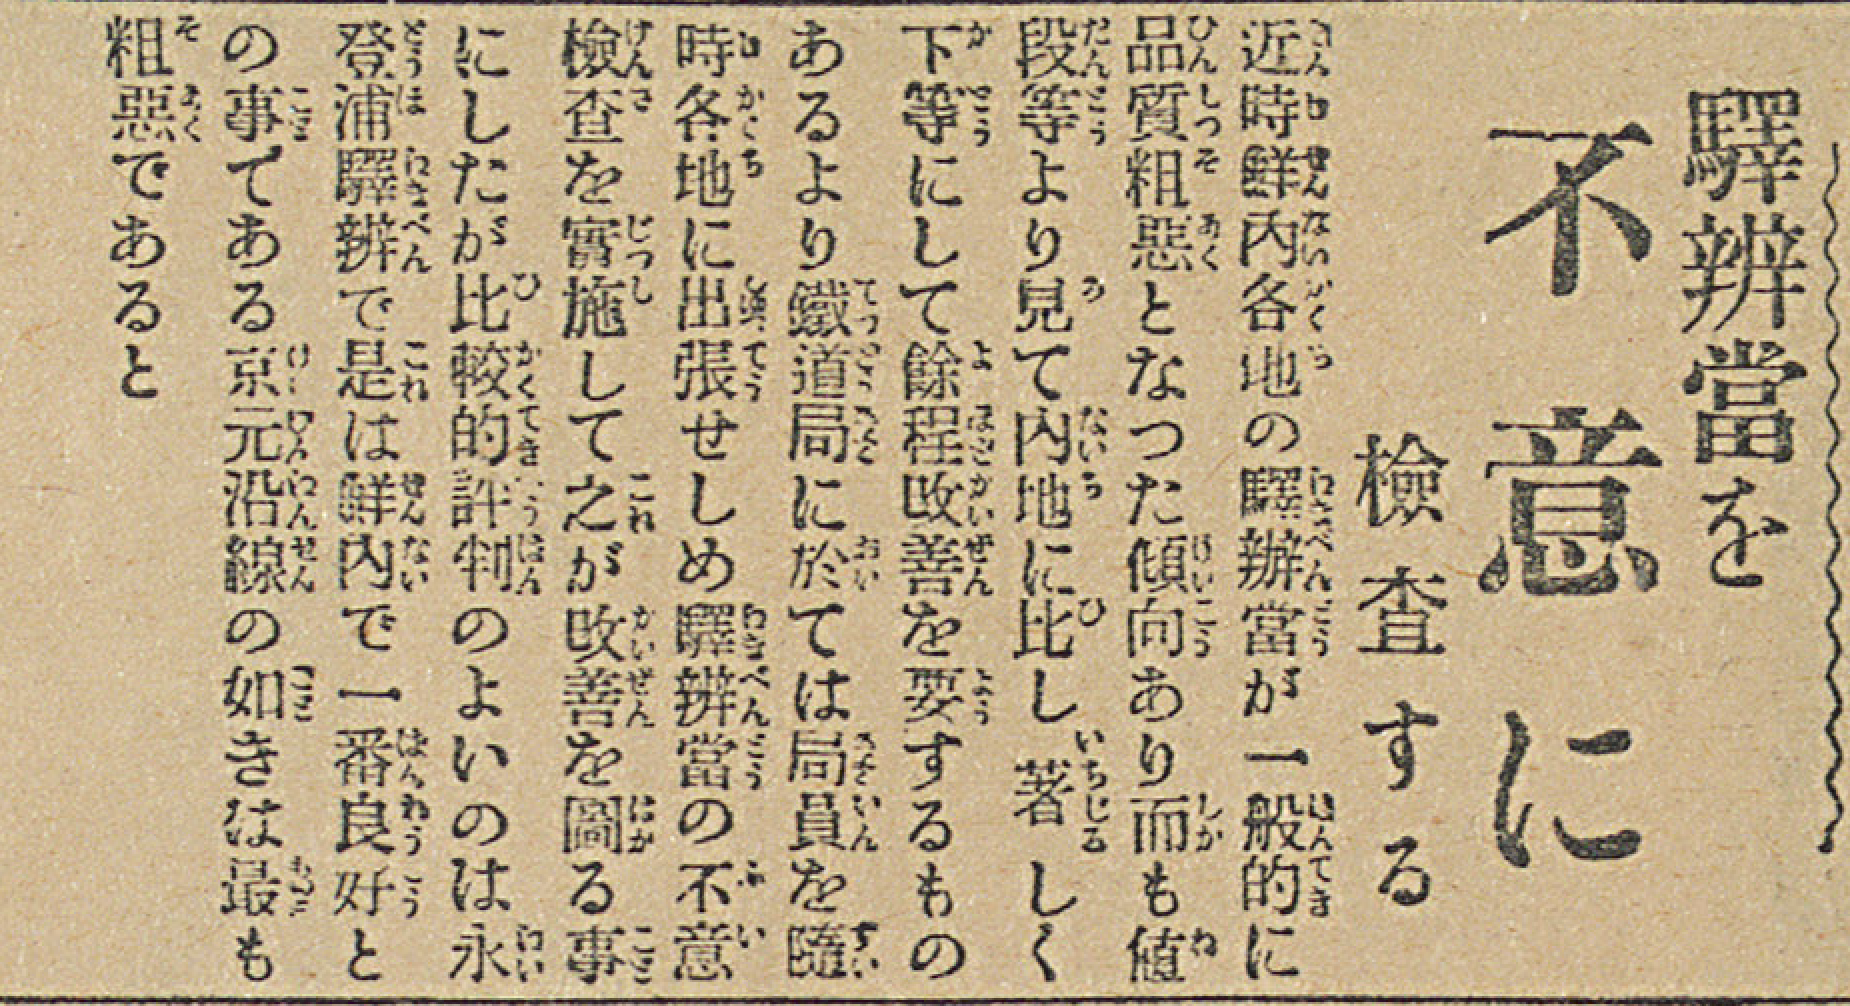 驛辨當を
不意に
檢査する
近時鮮內各地の驛辨當が一般的に
品質粗惡となつた傾向あり而も値
段等より見て內地に比し著しく
下等にして餘程改善を要するもの
あるより鐵道局に於ては局員を隨
時各地に出張せしめ驛辨當の不意
檢査を實施して之が改善を圖る事
にしたが比較的評判のよいのは永
登浦驛辨で是は鮮內で一番良好と
の事てある京元沿線の如きは最も
粗惡であると